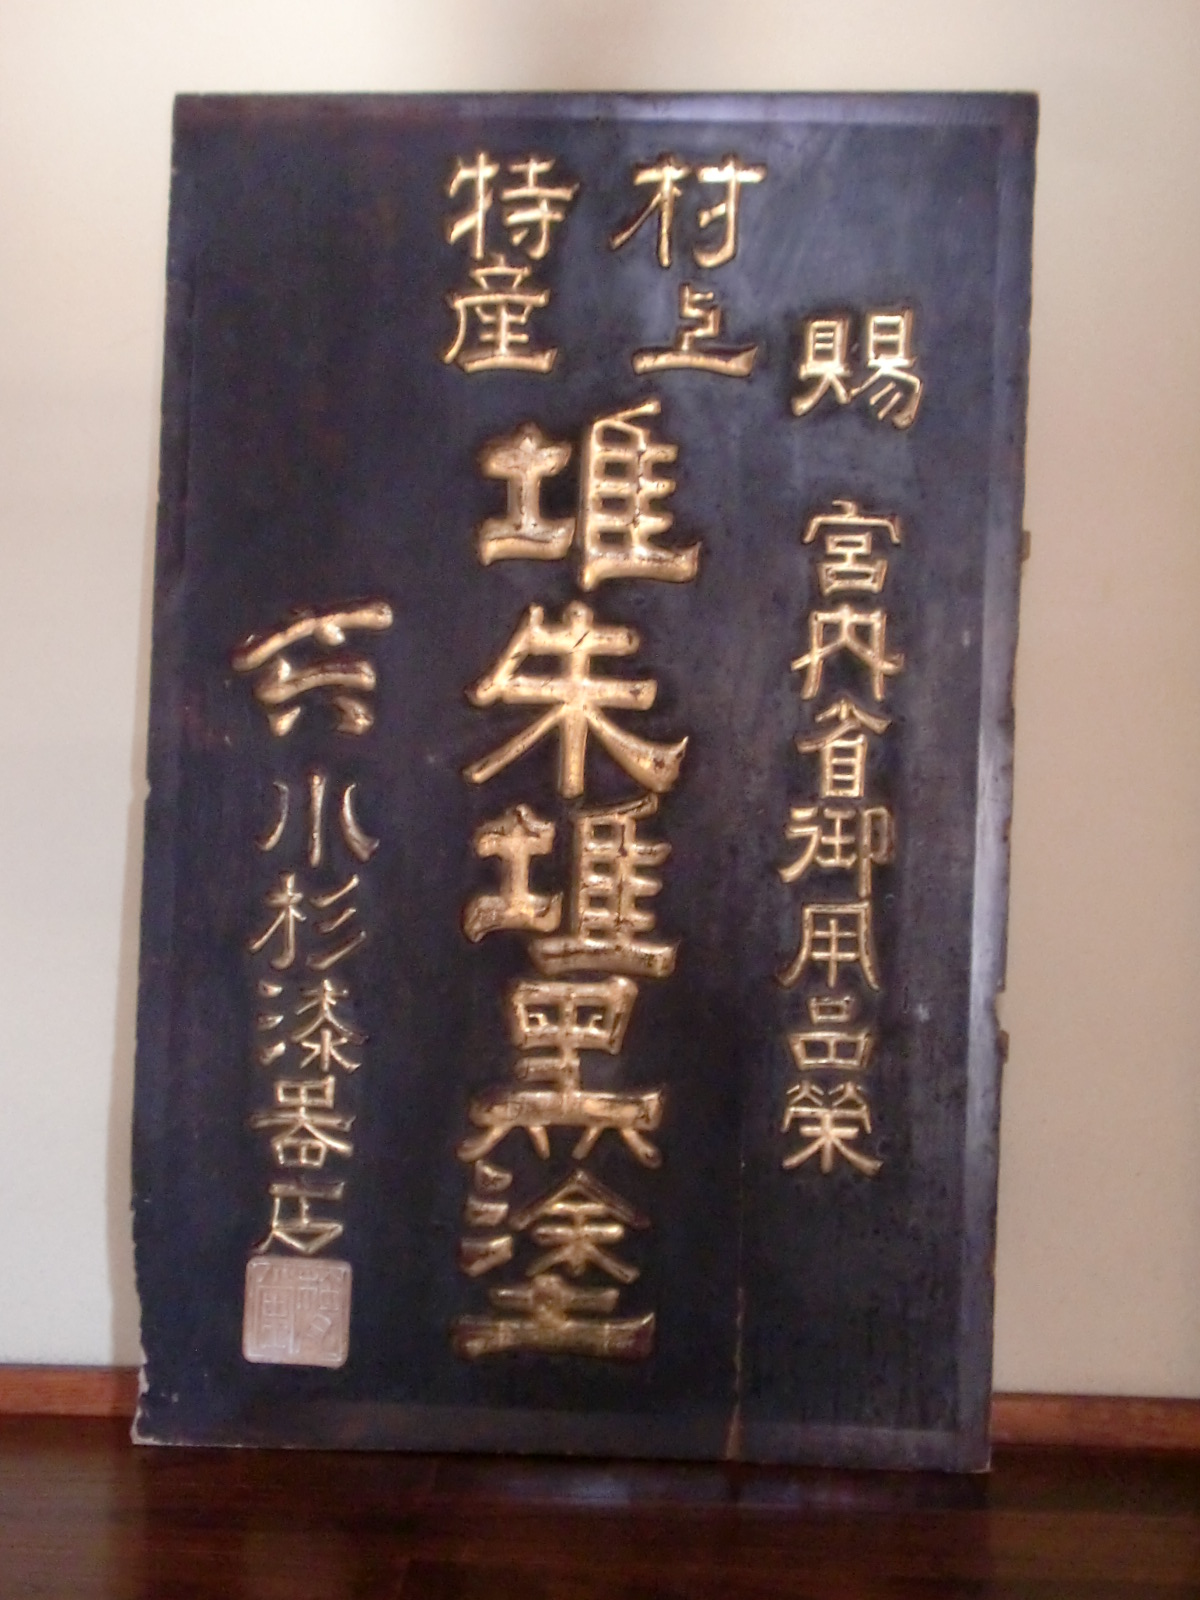 賜 宮内省御用品榮
村上
特産
堆朱堆黒塗
小杉漆器店